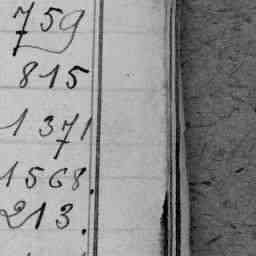 759
815
1371
1568.
213.